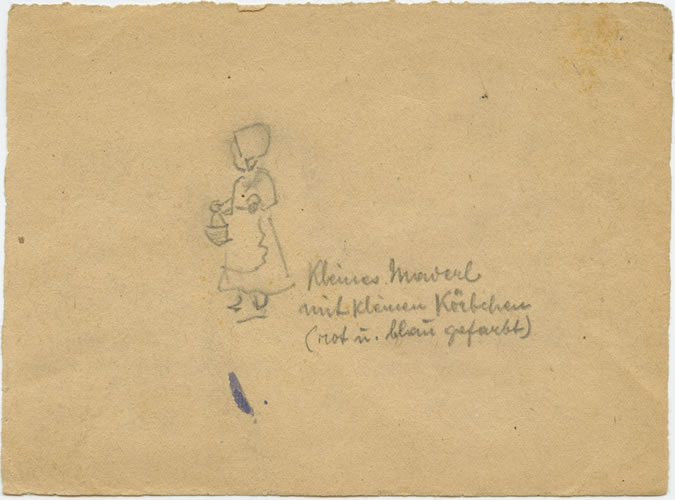 Kleines Maderl
mit kleinen Körbchen
(rot u. blau gefärbt)